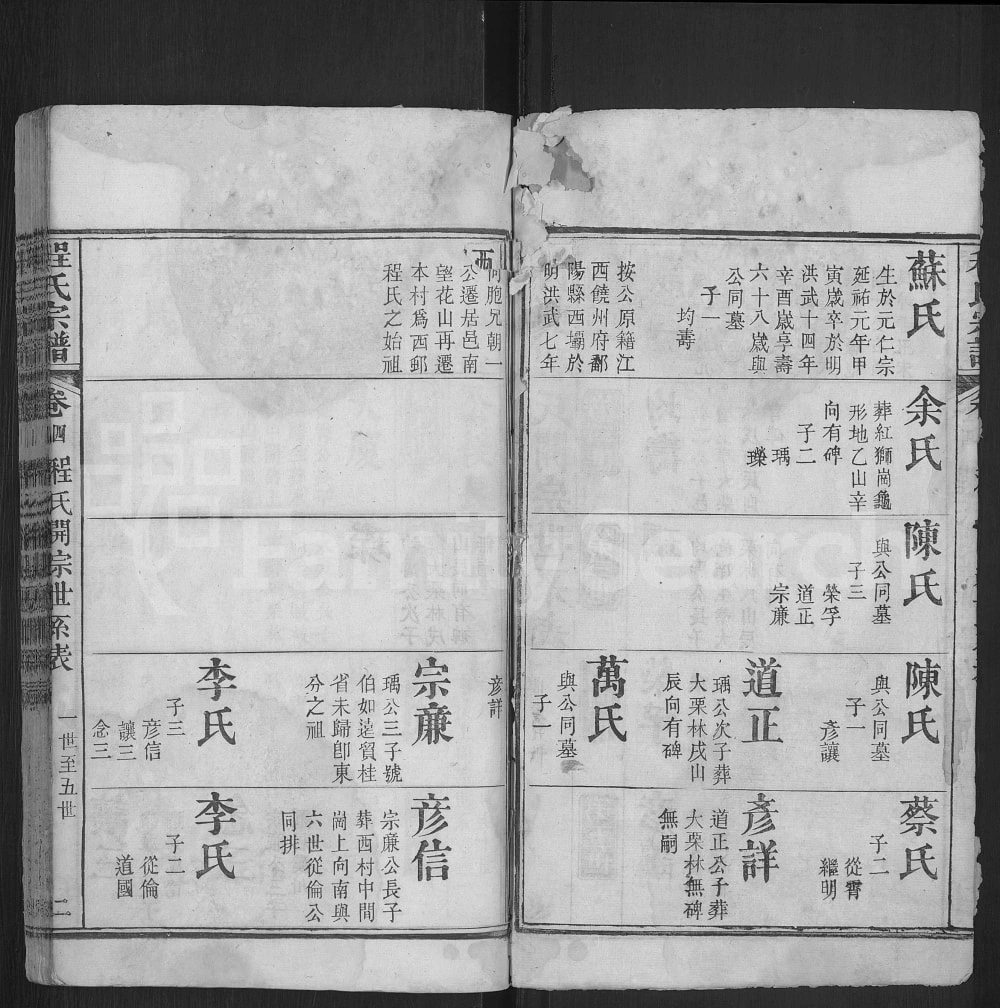 蘇氏
生於元仁宗
延祐元年甲
寅歲卒於明
洪武十四年
辛酉歲亨壽
六十八歲與
公同墓
子一
均壽
按公原籍江
西饒州府鄱
陽縣西壩於
明洪武七年
余氏
葬紅獅崗龜
形地乙山辛
向有碑
子二
瑀
瓅
陳氏
與公同墓
子三
榮孚
道正
宗廉
陳氏
與公同墓
子一
彦讓
道正
瑀公次子葬
大栗林戌山
辰向有碑
萬氏
與公同墓
子一
蔡氏
子二
從霄
繼明
彥詳
道正公子葬
大栗林無碑
無嗣
同胞兄朝一
公遷居邑南
望花山再遷
本村爲西邨
程氏之始祖
彦詳
宗廉
瑀公三子號
伯如遠貿桂
省未歸卽東
分之祖
李氏
子三
彦信
讓三
念三
彦信
宗廉公長子
葬西村中間
崗上向南與
六世從倫公
同排
李氏
子二
從倫
道國
程氏宗譜
卷四
程氏開宗世系表
一世至五世
二